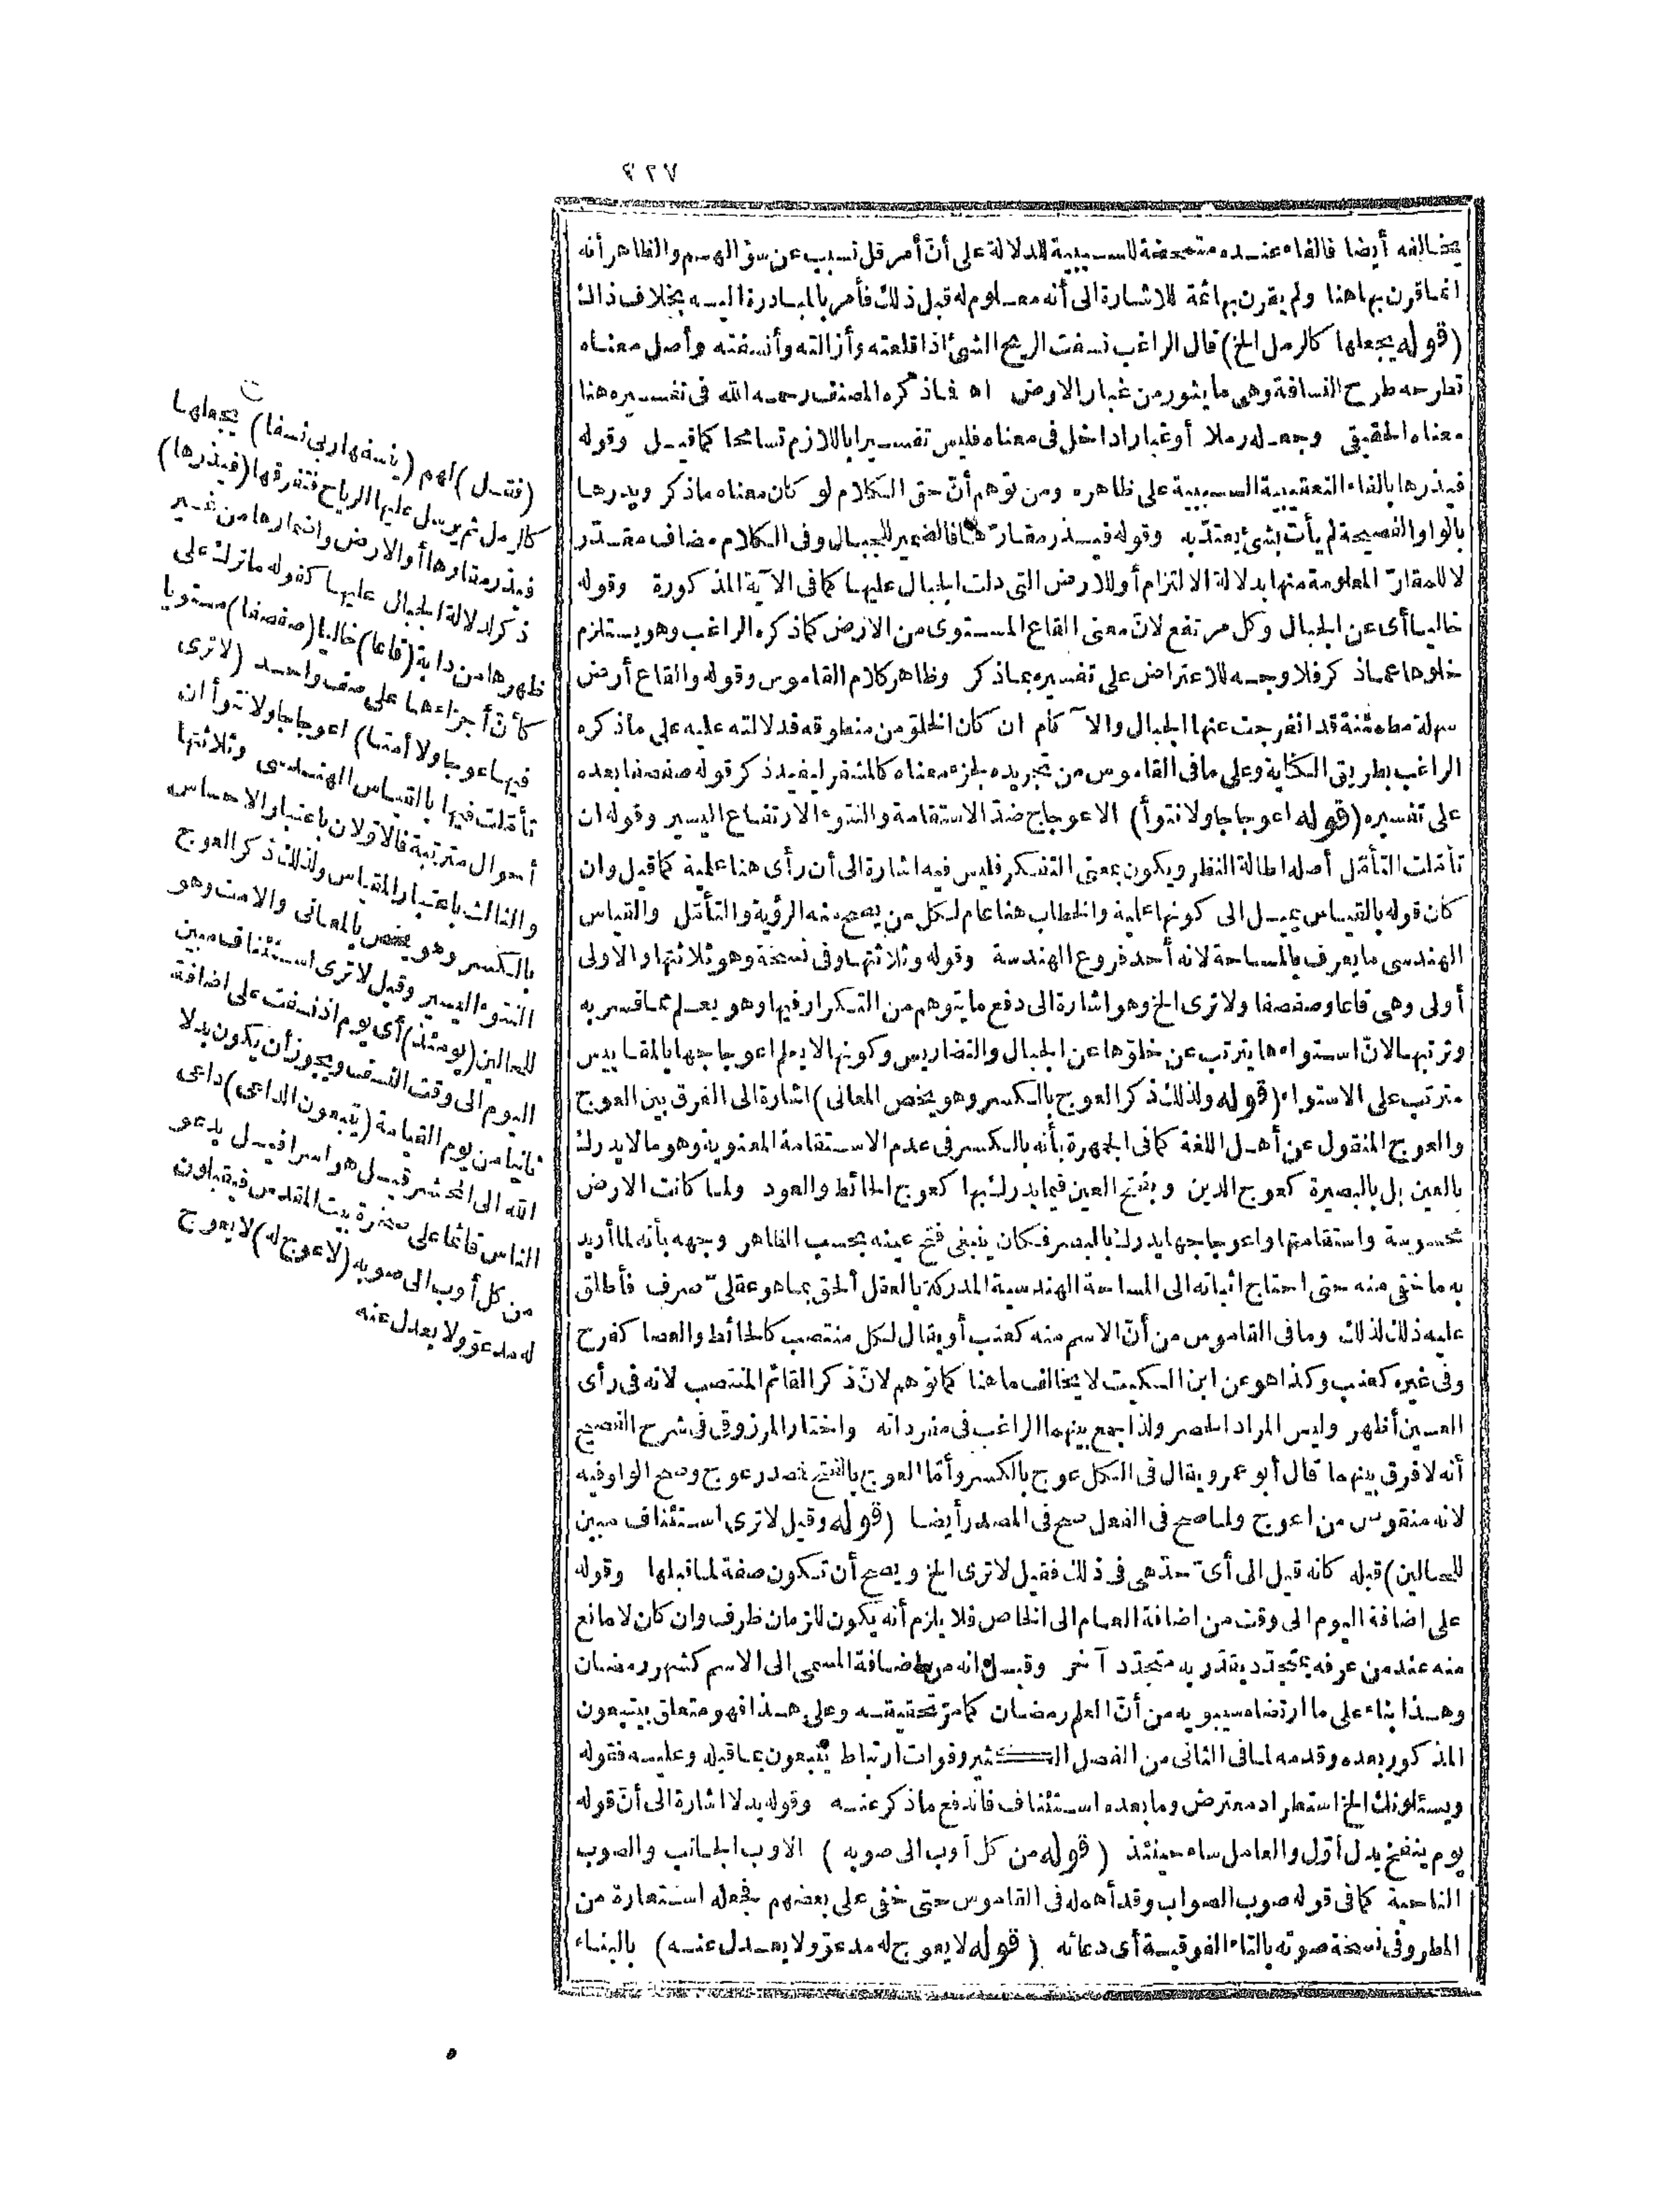 ٢٢٧
يخالفه أيضا فالفاء عنده متمحضة للسببية للدلالة على أنّ أمر قل تسبب عن سؤالهم والظاهر أنه
انما قرن بها هنا ولم يقرن بها ثمة للاشارة الى أنه معلوم له قبل ذلك فأمر بالمبادرة اليه بخلاف ذاك
(قوله يجعلها كالرمل الخ) قال الراغب نسفت الريح الشئ اذا قلعته وأزالته وأنسفته وأصل معناه
تطرحه طرح النسافة وهى ما يثور من غبار الارض اه فاذكره المصنف رحمه الله فى تفسيره هنا
معناه الحقيقى وجعله رملا أو غبارا داخل فى معناه فليس تفسيرا باللازم تسامحا كما قيل وقوله
فيذرها بالفاء التعقيبية السببية على ظاهره ومن توهم أنّ حق الكلام لو كان معناه ما ذكر ويذرها
بالواو الفصيحة لم يأت بشئ يعتدّبه وقوله فيذر مقارّها فالضمير للجبال وفى الكلام مضاف مقدّر
لا للمقارّ المعلومة منها بدلالة الالتزام أو للارض التى دلت الجبال عليها كما فى الآية المذكورة وقوله
خاليا أى عن الجبال وكل مرتفع لانّ معنى القاع المستوى من الارض كما ذكره الراغب وهو يستلزم
خلوها عما ذكر فلا وجه للاعتراض على تفسيره بما ذكر وظاهر كلام القاموس وقوله والقاع أرض
سهلة مطمئنة قد انفرجت عنها الجبال والآكام ان كان الخلوّ من منطوقه فدلالته عليه على ما ذكره
الراغب بطريق الكناية وعلى ما فى القاموس من تجريده لجزء معناه كالمشفر ليفيد ذكر قوله صفصفا بعده
على تفسيره (قوله اعوجاجا ولا نتوأ) الاعوجاج ضدّ الاستقامة والنتوء الارتفاع اليسير وقوله ان
تأمّلت التأمّل أصله اطالة النظر ويكون بمعنى التفكر فليس فيه اشارة الى أن رأى هنا علمية كما قيل وان
كان قوله بالقياس يميل الى كونها علمية والخطاب هنا عام لكل من يصح منه الرؤية والتأمّل والقياس
الهندسى ما يعرف بالمساحة لانه أحد فروع الهندسة وقوله وثلاثتها وفى نسخة وهو ثلاثتها والاولى
أولى وهى قاعا وصفصفا ولا ترى الخ وهو اشارة الى دفع ما يتوهم من التكرار فيها وهو يعلم مما فسر به
وترتبها لانّ استواءها يترتب عن خلوّها عن الجبال والتضاريس وكونها لا يعلم اعوجاجها بالمقاييس
مترتب على الاستواء (قوله ولذلك ذكر العوج بالكسر وهو يخص المعانى) اشارة الى الفرق بين العوج
والعوج المنقول عن أهل اللغة كما فى الجمهرة بأنه بالكسر فى عدم الاستقامة المعنوية وهو ما لا يدرك
بالعين بل بالبصيرة كعوج الدين وبفتح العين فيما يدرك بها كعوج الحائط والعود ولما كانت الارض
محسوسة واستقامتها واعوجاجها يدرك بالبصر فكان ينبغى فتح عينه بحسب الظاهر وجهه بأنه لما أريد
به ما خفى منه حتى احتاج اثباته الى المساحة الهندسية المدركة بالعقل ألحق بما هو عقلىّ صرف فأطلق
عليه ذلك لذلك وما فى القاموس من أنّ الاسم منه كعنب أو يقال لكل منتصب كالحائط والعصا كفرح
وفى غيره كعنب وكذا هو عن ابن السكيت لا يخالف ما هنا كما توهم لانّ ذكر القائم المنتصب لانه فى رأى
العين أظهر وليس المراد الحصر ولذا جمع بينهما الراغب فى مفرداته واختار المرزوقى فى شرح الفصيح
أنه لا فرق بينهما قال أبو عمرو يقال فى الكل عوج بالكسر وأمّا العوج بالفتح فمصدر عوج وصح الواو فيه
لانه منقوص من اعوج ولما صح فى الفعل صح فى المصدر أيضا (قوله وقيل لا ترى استئناف مبين
للحالين) قبله كأنه قيل الى أىّ حدّ هى فى ذلك فقيل لا ترى الخ ويصح أن تكون صفة لما قبلها وقوله
على اضافة اليوم الى وقت من اضافة العام الى الخاص فلا يلزم أنه يكون للزمان ظرف وان كان لا مانع
منه عند من عرفه بمتجدّد يقدّر به متجدّد آخر وقيل انه من اضافة المسمى الى الاسم كشهر رمضان
وهذا بناء على ما ارتضاه سيبويه من أنّ العلم رمضان كما مرّ تحقيقه وعلى هذا فهو متعلق بيتبعون
المذكور بعده وقدمه لما فى الثانى من الفصل الكثير وفوات ارتباط يتبعون بما قبله وعليه فقوله
ويسئلونك الخ استطراد معترض وما بعده استئناف فاندفع ما ذكر عنه وقوله بدلا اشارة الى أنّ قوله
يوم ينفخ بدل أوّل والعامل ساء حينئذ (قوله من كل أوب الى صوبه) الاوب الجانب والصوب
الناحية كما فى قوله صوب الصواب وقد أهمله فى القاموس حتى خفى على بعضهم فجعله استعارة من
المطر وفى نسخة صوته بالتاء الفوقية أى دعائه (قوله لا يعوج له مدعوّ ولا يعدل عنه) بالبناء
(فقل) لهم (ينسفها ربى نسفا) يجعلها
كالرمل ثم يرسل عليها الرياح فتفرقها (فيذرها)
فيذر مقارها أو الارض واضمارها من غير
ذكر لدلالة الجبال عليها كقوله ما ترك على
ظهرها من دابة (قاعا) خاليا (صفصفا) مستويا
كأنّ أجزاءها على صف واحد (لا ترى
فيها عوجا ولا أمتا) اعوجاجا ولا نتوأ ان
تأمّلت فيها بالقياس الهندسى وثلاثتها
أحوال مترتبة فالاوّلان باعتبار الاحساس
والثالث باعتبار المقياس ولذلك ذكر العوج
بالكسر وهو يخص بالمعانى والامت وهو
النتوء اليسير وقيل لا ترى استئناف مبين
للحالين (يومئذ) أى يوم اذ نسفت على اضافة
اليوم الى وقت النسف ويجوز أن يكون بدلا
ثانيا من يوم القيامة (يتبعون الداعى) داعى
الله الى المحشر قيل هو اسرافيل يدعو
الناس قائما على صخرة بيت المقدس فيقبلون
من كل أوب الى صوبه (لا عوج له) لا يعوج
له مدعوّ ولا يعدل عنه